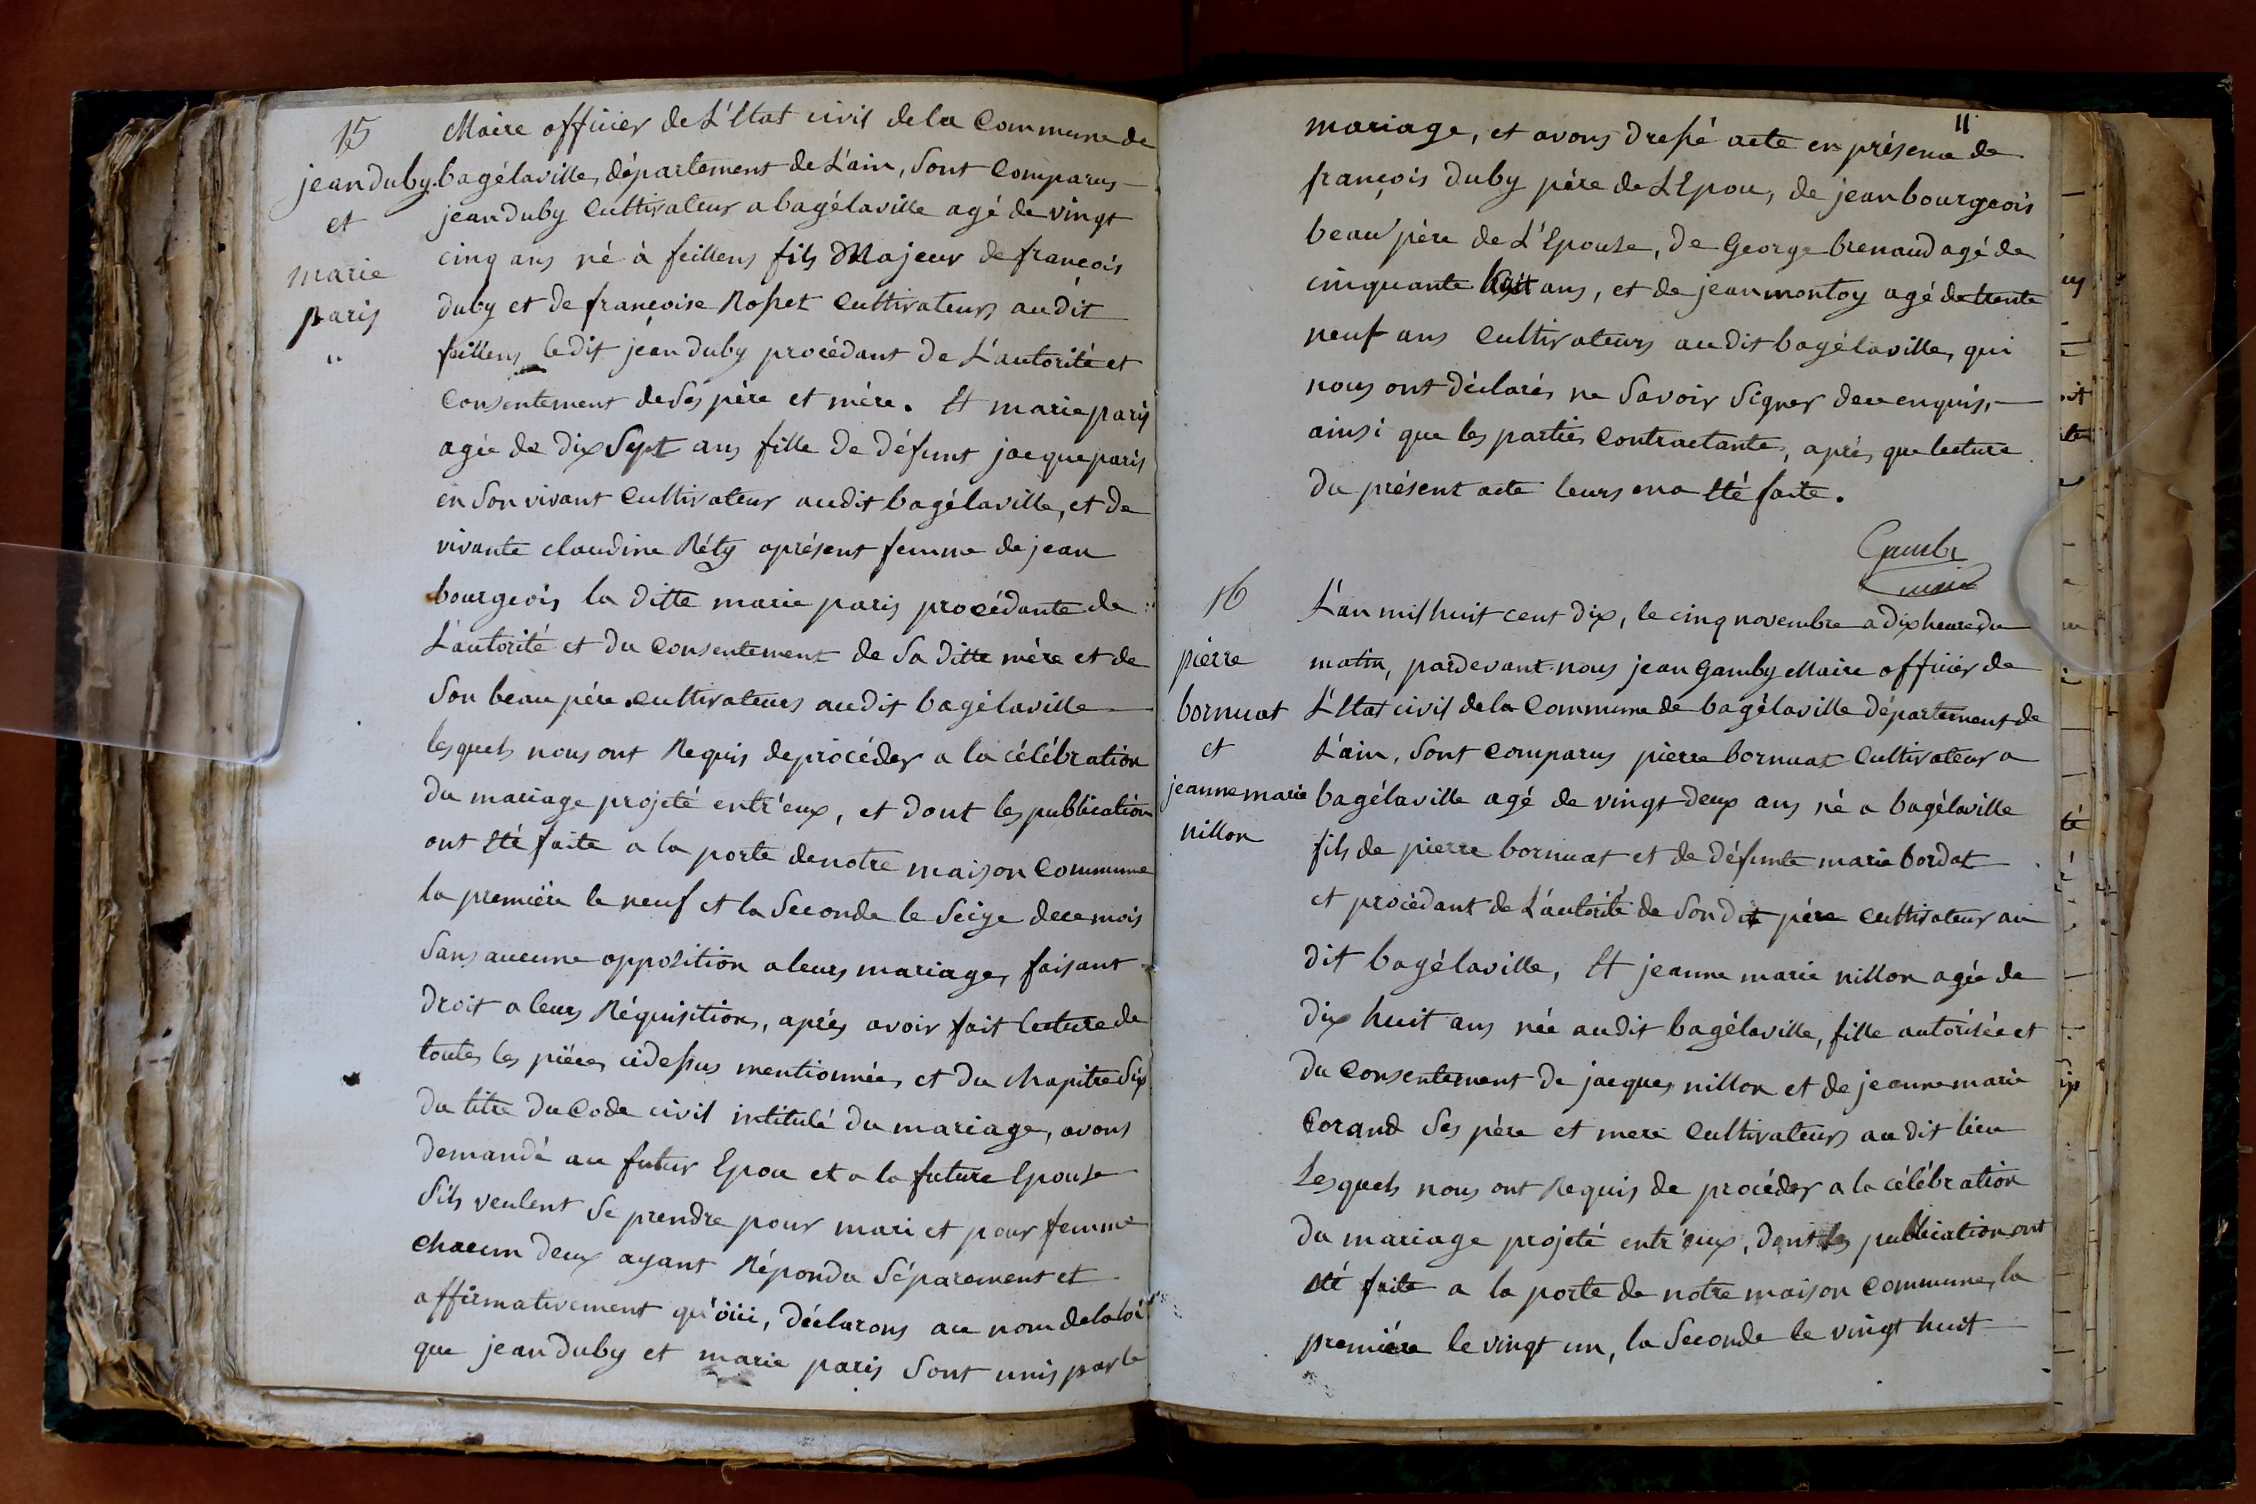 15
jean duby
et
marie
paris
"
Maire officier de L'Etat civil de la Commune de
bagélaville, département de L'ain, Sont Comparus
jean duby Cultivateur a bagélaville agé de vingt
cinq ans né à feillens fils Majeur de françois
duby et de françoise Rosset Cultivateurs audit
feillens le dit jean duby procédant de L'autorité et
Consentement de Ses père et mère. Et marie paris
agée de dix Sept ans fille de défunt jacque paris
en Son vivant Cultivateur audit bagélaville, et de
vivante claudine Réty aprésent femme de jean
bourgeois la ditte marie paris procédante de
L'autorité et du Consentement de Sa ditte mère et de
Son beau père Cultivateurs audit bagélaville
les quels nous ont Requis de procéder a la célébration
du mariage projeté entr'eux, et dont les publication
ont Eté faite a la porte de notre maison Commune
la première le neuf et la Seconde le Seize de ce mois
Sans aucune opposition a leurs mariage, faisant
droit a leurs Réquisitions, après avoir fait lecture de
toutes les pièces cidessus mentionnées et du chapitre Six
du titre du Code civil intitulé du mariage, avons
demandé au futur Epou et a la future Epouse
S'ils veulent Se prendre pour mari et pour femme
chacun deux ayant Répondu Séparement et
affirmativement qu'öüi, déclarons au nom de la loi
que jean duby et marie paris Sont unis par le
11
mariage, et avons dressé acte en présence de
françois duby père de L'Epou, de jean bourgeois
beau père de L'Epouse, de George brenaud agé de
cinquante huit ans, et de jean montoy agé de trente
neuf ans Cultivateurs audit bagélaville, qui
nous ont déclarés ne Savoir Signer de ce enquis,
ainsi que les parties Contractante, après que lecture
du présent acte leurs en a Eté faite.
maire
16
pierre
bornuat
et
jeanne marie
nillon
L'an mil huit cent dix, le cinq novembre a dix heure du
matin, pardevant nous jean Gamby Maire officier de
L'Etat civil de la Commune de bagélaville département de
L'ain, Sont Comparus pierre bornuat Cultivateur a
bagélaville agé de vingt deux ans né a bagélaville
fils de pierre bornuat et de défunte marie bordat
et procédant de L'autorité de Son dit père Cultivateur au
dit bagélaville, Et jeanne marie nillon agée de
dix huit ans née audit bagélaville, fille autorisée et
du Consentement de jacques nillon et de jeanne marie
Corand Ses père et mere Cultivateurs au dit lieu
Les quels nous ont Requis de procéder a la célébration
du mariage projeté entr'eux, dont les publication ont
Eté faite a la porte de notre maison Commune, la
première le vingt un, la Seconde le vingt huit